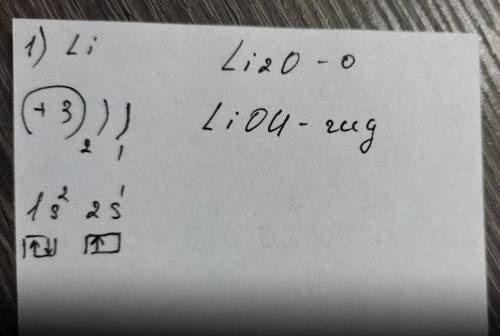 1) Li
Li2O - o
+3
2 1
LiOH - гид
1s² 2s¹